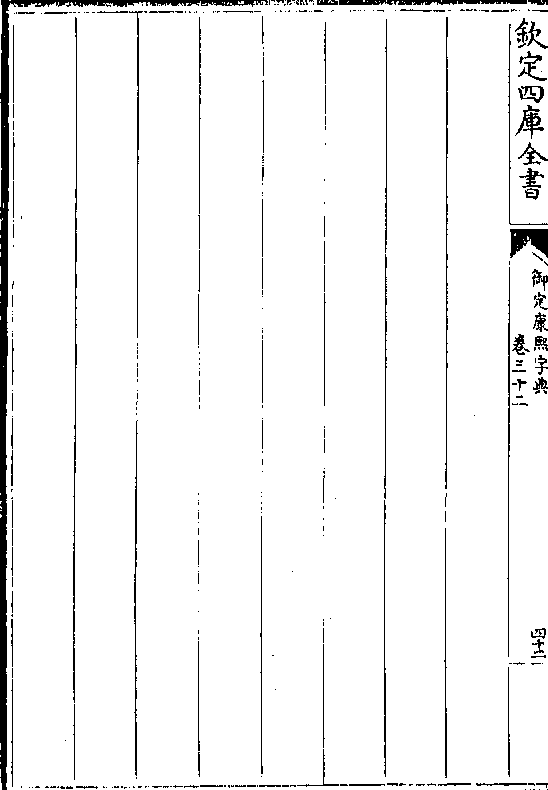 欽定四庫全書
御定康熙字典
卷三十二
四十二